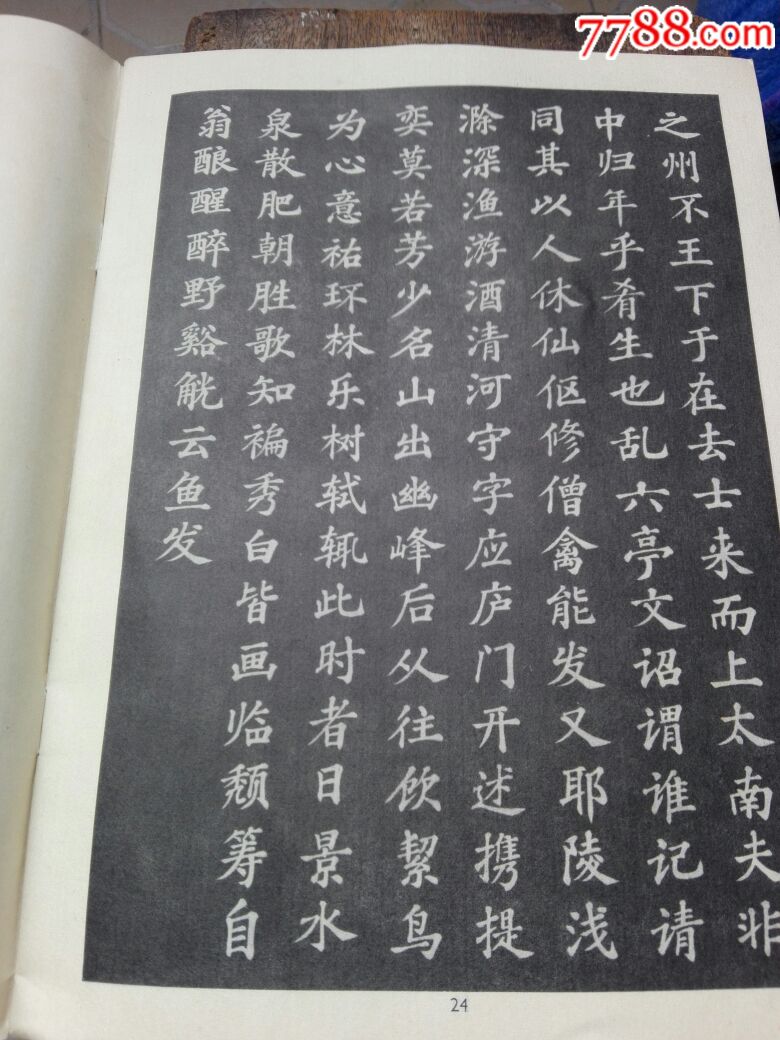 7788.com
之州不王下于在去士来而上太南夫非
中归年乎肴生也乱六亭文诏谓谁记请
同其以人休仙伛修僧禽能发又耶陵浅
滁深渔游酒清河守字应庐门开述携提
奕莫若芳少名山出幽峰后从往饮挈鸟
为心意祐环林乐树轼辄此时者日景水
泉散肥朝胜歌知褊秀白皆画临颓筹自
翁酿醒醉野谿觥云鱼发
24